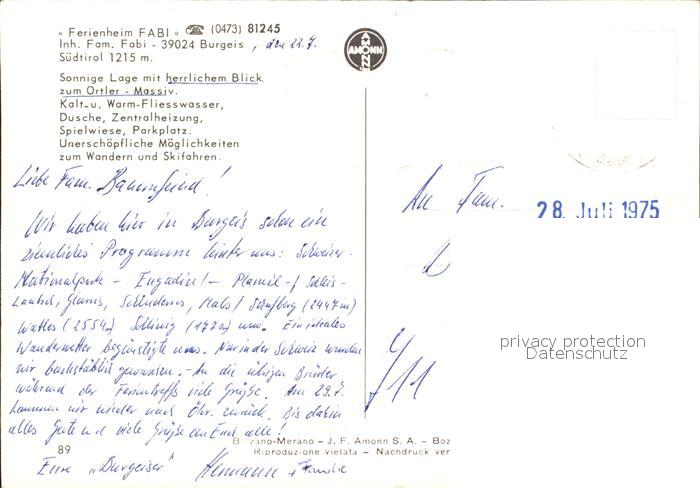 « Ferienheim FABI » ☎ (0473) 81245
Inh. Fam. Fabi - 39024 Burgeis, den 22.7.
Südtirol 1215 m.
Sonnige Lage mit herrlichem Blick
zum Ortler - Massiv.
Kalt-u. Warm-Fliesswasser,
Dusche, Zentralheizung,
Spielwiese, Parkplatz.
Unerschöpfliche Möglichkeiten
zum Wandern und Skifahren.
AMONN
Liebe Fam.
Wir haben hier in Burgeis schon ein
ziemliches Programm hinter uns: Schweizer-
Nationalpark - Engadin! - Planeil - Schleis -
Laatsch, Glurns, Schluderns, Mals
Watles (2554m) Schlinig usw. Ein ideales
Wanderwetter begünstigte uns. Nur in der Schweiz wurden
wir buchstäblich gewaschen. - An die übrigen Brüder
während der Ferientreffs viele Grüße. Am 29.7.
kommen wir wieder nach zurück. Bis dahin
alles Gute und viele Grüße an Euch alle!
Eure „Burgeiser" Hermann + Familie
An Fam.
28. Juli 1975
privacy protection
Datenschutz
89
zano-Merano - J. F. Amonn S. A. - Boz
Riproduzione vietata - Nachdruck ver